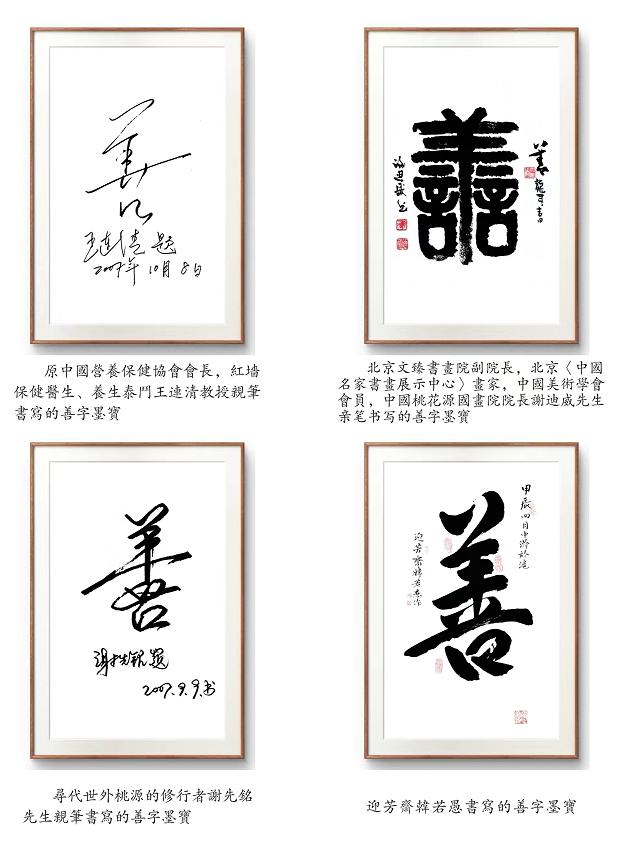 善
王連清 题
2007年 10月 8日
原中國營養保健協會會長，紅墙
保健醫生、養生泰鬥王連清教授親筆
書寫的善字墨寶
善
善
北京文臻書畫院副院長，北京〈中國
名家書畫展示中心〉畫家，中國美術學會
會員，中國桃花源國畫院院長謝迪威先生
亲笔书写的善字墨寶
善
2007.9.9.书
尋代世外桃源的修行者謝先銘
先生親筆書寫的善字墨寶
甲辰四月中澣於滬
善
迎芳齋韓若愚作
迎芳齊韓若愚書寫的善字墨寶